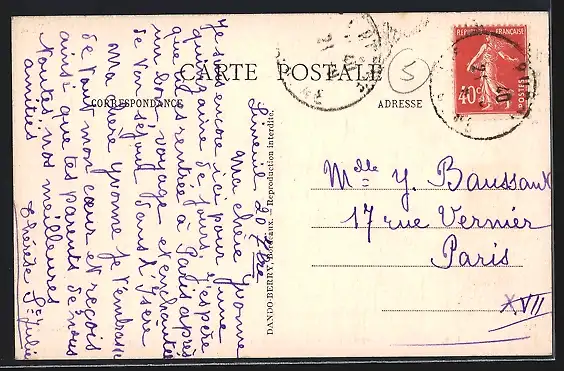 CARTE POSTALE
CORRESPONDANCE
ADRESSE
5
RÉPUBLIQUE FRANÇAISE
40c
POSTES
Limeuil 20 7bre
Ma chère Yvonne
Je suis encore ici pour une
quinzaine de jours. J'espère
que tu es rentrée à Paris après
un bon voyage et enchantée
de ton séjour dans l'Isère
Ma chère Yvonne je t'embrasse
de tout mon cœur et reçois
ainsi que tes parents de nous
toutes nos meilleures
amitiés
Thérèse St Julien
DANDO-BERRY, Bordeaux. — Reproduction interdite.
Mdlle Y. Baussant
17 rue Vernier
Paris
XVII